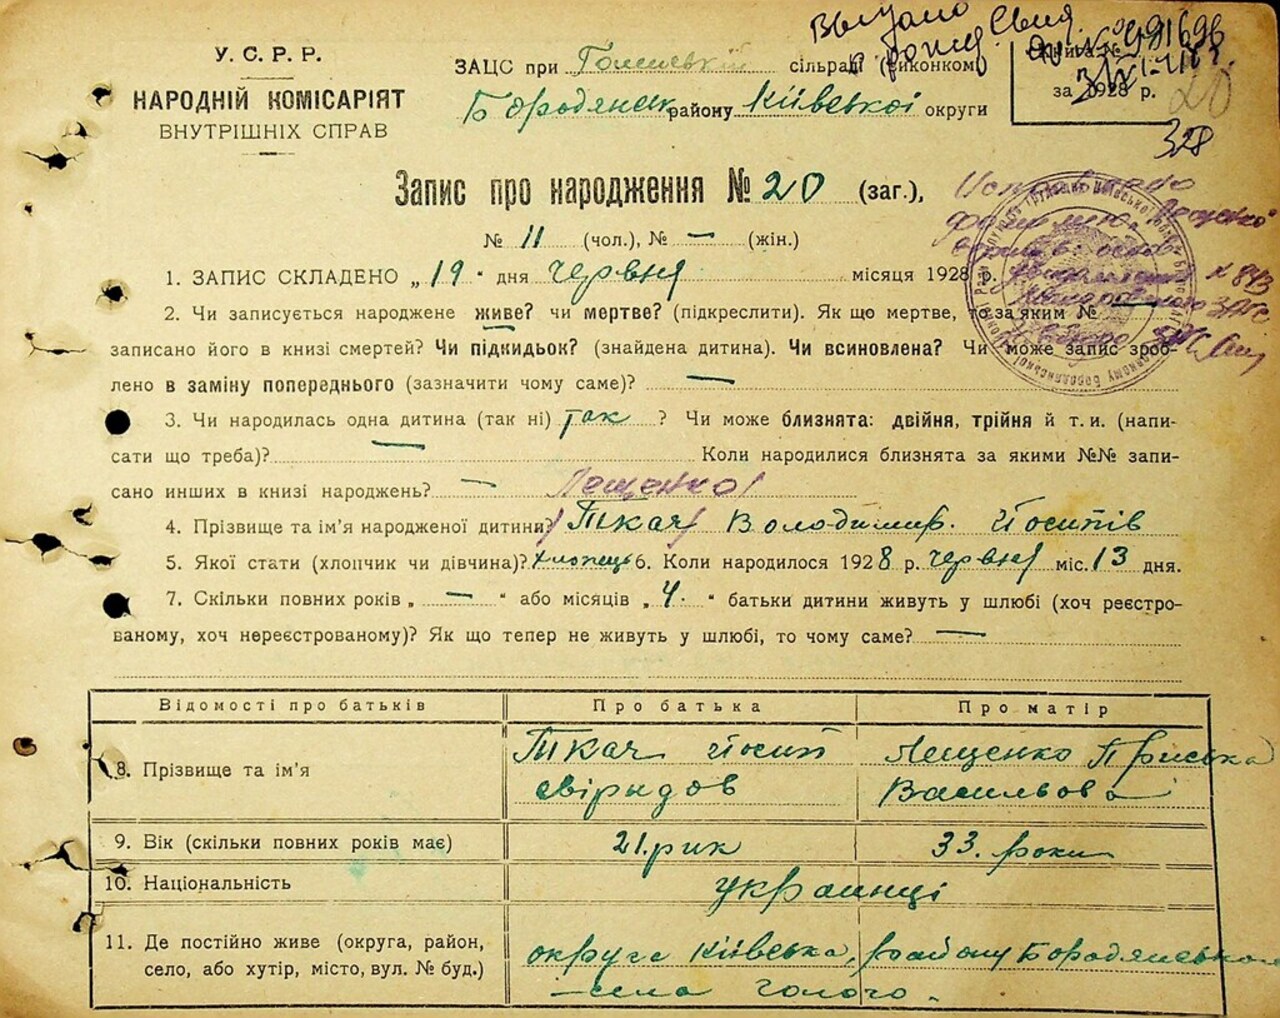 Выдано
Книга №
за 1928 р.
20
328
У. С. Р. Р.
НАРОДНІЙ КОМІСАРІЯТ
ВНУТРІШНІХ СПРАВ
ЗАЦС при сільраді (виконком)
Бородянськ району Київської округи
Запис про народження № 20 (заг.),
№ 11 (чол.), № — (жін.)
1. ЗАПИС СКЛАДЕНО „19“ дня червня місяця 1928 р.
2. Чи записується народжене живе? чи мертве? (підкреслити). Як що мертве, то за яким № —
записано його в книзі смертей? Чи підкидьок? (знайдена дитина). Чи всиновлена? Чи може запис зроб-
лено в заміну попереднього (зазначити чому саме)? —
3. Чи народилась одна дитина (так ні) так ? Чи може близнята: двійня, трійня й т. и. (напи-
сати що треба)? — Коли народилися близнята за якими №№ запи-
сано инших в книзі народжень? —
Лещенко
4. Прізвище та ім’я народженої дитини? (Ткач) Володимир. Йосипів
5. Якої стати (хлопчик чи дівчина)? хлопець 6. Коли народилося 1928 р. червня міс. 13 дня.
7. Скільки повних років „ — “ або місяців „ 4. “ батьки дитини живуть у шлюбі (хоч реєстро-
ваному, хоч нереєстрованому)? Як що тепер не живуть у шлюбі, то чому саме? —
Исправлено
фамилию Лещенко
№ 843
ЗАГС
Відомості про батьків Про батька Про матір
8. Прізвище та ім’я Ткач Йосип Лещенко Приська
Свіридов Васильова
9. Вік (скільки повних років має) 21. рик 33. роки
10. Національність украинці
11. Де постійно живе (округа, район, село, або хутір, місто, вул. № буд.) округа Київська, району Бородянського
села голого.